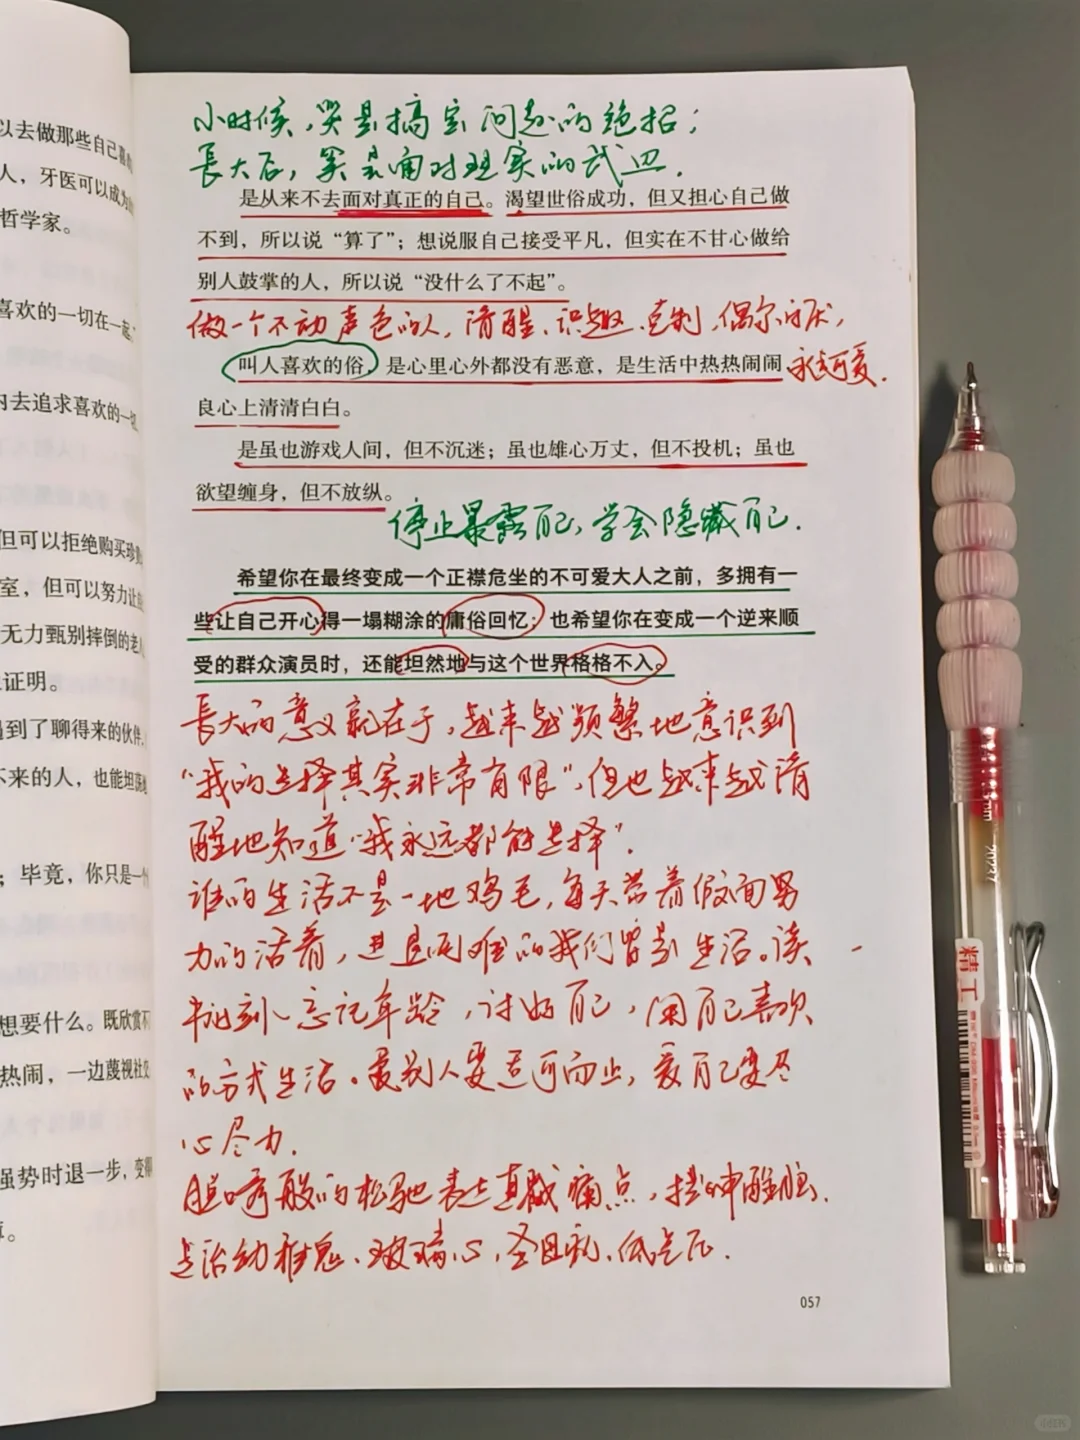 以去做那些自己喜
人，牙医可以成为
哲学家。
喜欢的一切在一起
内去追求喜欢的一切
但可以拒绝购买珍
室，但可以努力让
无力甄别摔倒的老
证明。
遇到了聊得来的伙伴
不来的人，也能坦
；毕竟，你只是一个
想要什么。既欣赏不
热闹，一边蔑视社交
强势时退一步，变得
。
小时候，哭是搞定问题的绝招；
長大后，笑是面对现实的武器．
是从来不去面对真正的自己。渴望世俗成功，但又担心自己做
不到，所以说“算了”；想说服自己接受平凡，但实在不甘心做给
别人鼓掌的人，所以说“没什么了不起”。
做一个不动声色的人，清醒、识趣、克制，偶尔讨厌，
叫人喜欢的俗，是心里心外都没有恶意，是生活中热热闹闹
永远可爱．
良心上清清白白。
是虽也游戏人间，但不沉迷；虽也雄心万丈，但不投机；虽也
欲望缠身，但不放纵。
停止暴露自己，学会隐藏自己．
希望你在最终变成一个正襟危坐的不可爱大人之前，多拥有一
些让自己开心得一塌糊涂的庸俗回忆；也希望你在变成一个逆来顺
受的群众演员时，还能坦然地与这个世界格格不入。
長大的意义就在于，越来越频繁地意识到
“我的选择其实非常有限”，但也越来越清
醒地知道“我永远都能选择”．
谁的生活不是一地鸡毛，每天带着假面努
力的活着，进退两难的我们皆是生活。读
书 忘记年龄，讨好自己，用自己喜欢
的方式生活。爱别人要适可而止，爱自己要尽
心尽力．
般的松弛表达直戳痛点，提神醒脑．
治幼稚鬼、玻璃心、
057
精工